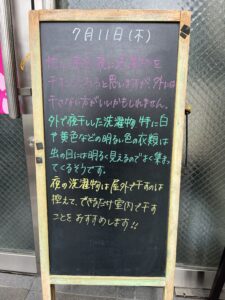 7月11日(木)
干そうとようと思いますが、外には
干さない方がいいかもしれません。
外で夜干しした洗濯物 特に白
や黄色などの明るい色の衣類は
虫の目には明るく見えるのでよく集まっ
てくるそうです。
夜の洗濯物は屋外で干すのは
控えて、できるだけ室内で干す
ことをおすすめします!!